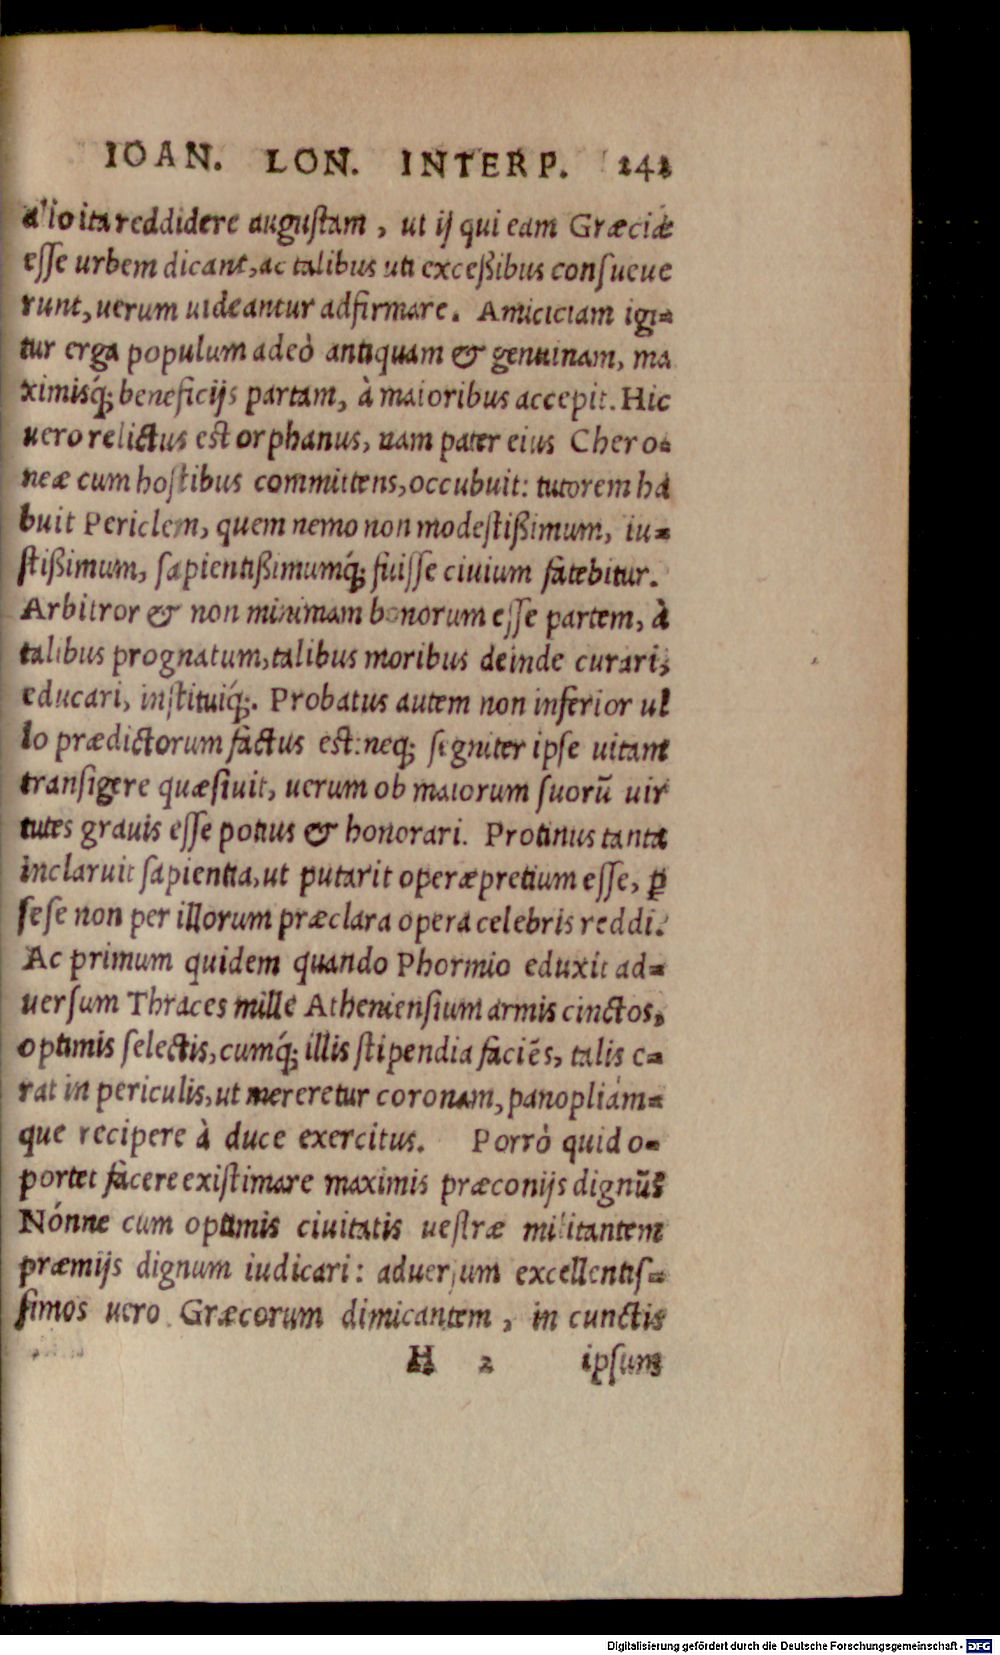 IOAN. LON. INTERP. 242
alio ita reddidere augustam, ut ij qui eam Græciæ
esse urbem dicant, ac talibus uti exceßibus consueue
runt, uerum uideantur adfirmare. Amiciciam igi=
tur erga populum adeò antiquam & genuinam, ma
ximisq́; beneficijs partam, à maioribus accepit. Hic
uero relictus est orphanus, nam pater eius Chero=
neæ cum hostibus committens, occubuit: tutorem ha
buit Periclem, quem nemo non modestißimum, iu=
stißimum, sapientißimumq́; fuisse ciuium fatebitur.
Arbitror & non minimam bonorum esse partem, à
talibus prognatum, talibus moribus deinde curari,
educari, instituiq́;. Probatus autem non inferior ul
lo prædictorum factus est: neq; segniter ipse uitam
transigere quæsiuit, uerum ob maiorum suorũ uir
tutes grauis esse potius & honorari. Protinus tanta
inclaruit sapientia, ut putarit operæpretium esse, ꝑ
sese non per illorum præclara opera celebris reddi.
Ac primum quidem quando Phormio eduxit ad=
uersum Thraces mille Atheniensium armis cinctos,
optimis selectis, cumq́; illis stipendia faciẽs, talis e=
rat in periculis, ut mereretur coronam, panopliám=
que recipere à duce exercitus. Porrò quid o=
portet facere existimare maximis præconijs dignũ?
Nónne cum optimis ciuitatis uestræ militantem
præmijs dignum iudicari: aduersum excellentis=
simos uero Græcorum dimicantem, in cunctis
H 2 ipsum
Digitalisierung gefördert durch die Deutsche Forschungsgemeinschaft - DFG